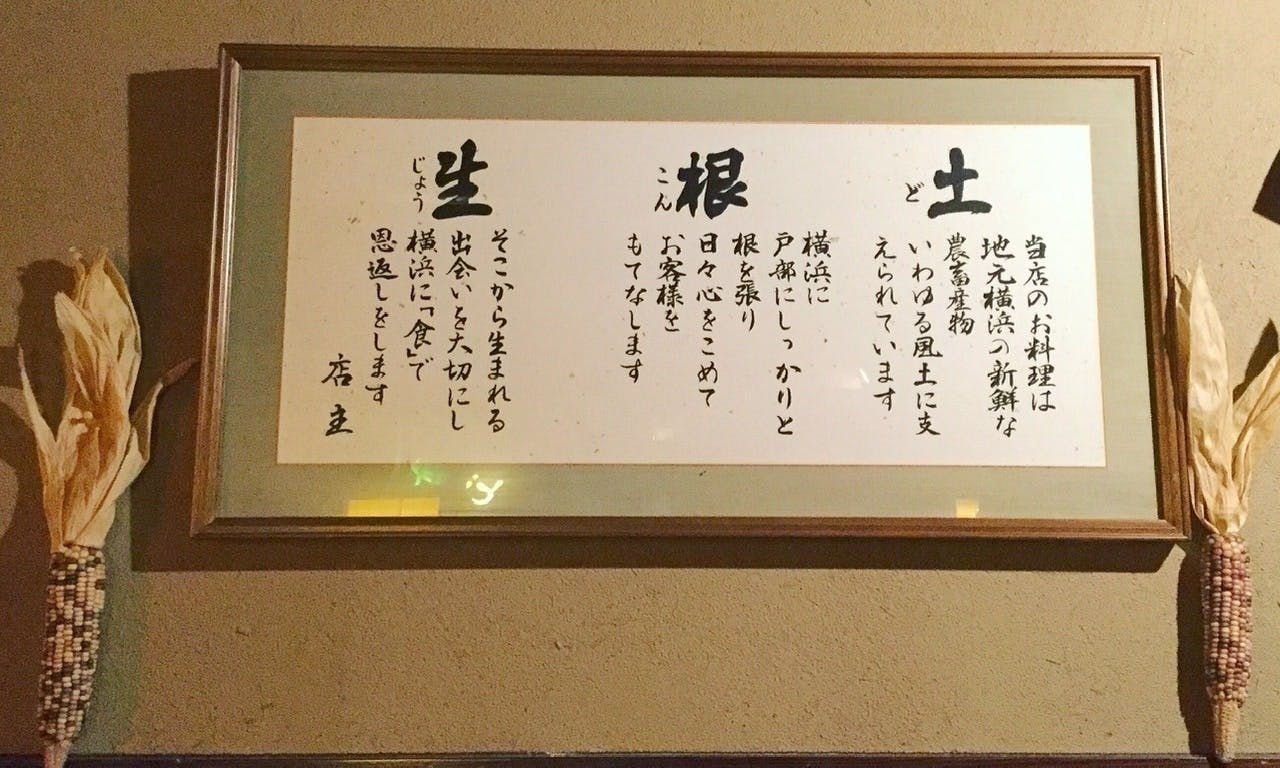 土
ど
当店のお料理は
地元横浜の新鮮な
農畜産物
いわゆる風土に支
えられています
根
こん
横浜に
戸部にしっかりと
根を張り
日々心をこめて
お客様を
もてなします
生
じょう
そこから生まれる
出会いを大切にし
横浜に「食」で
恩返しをします
店主